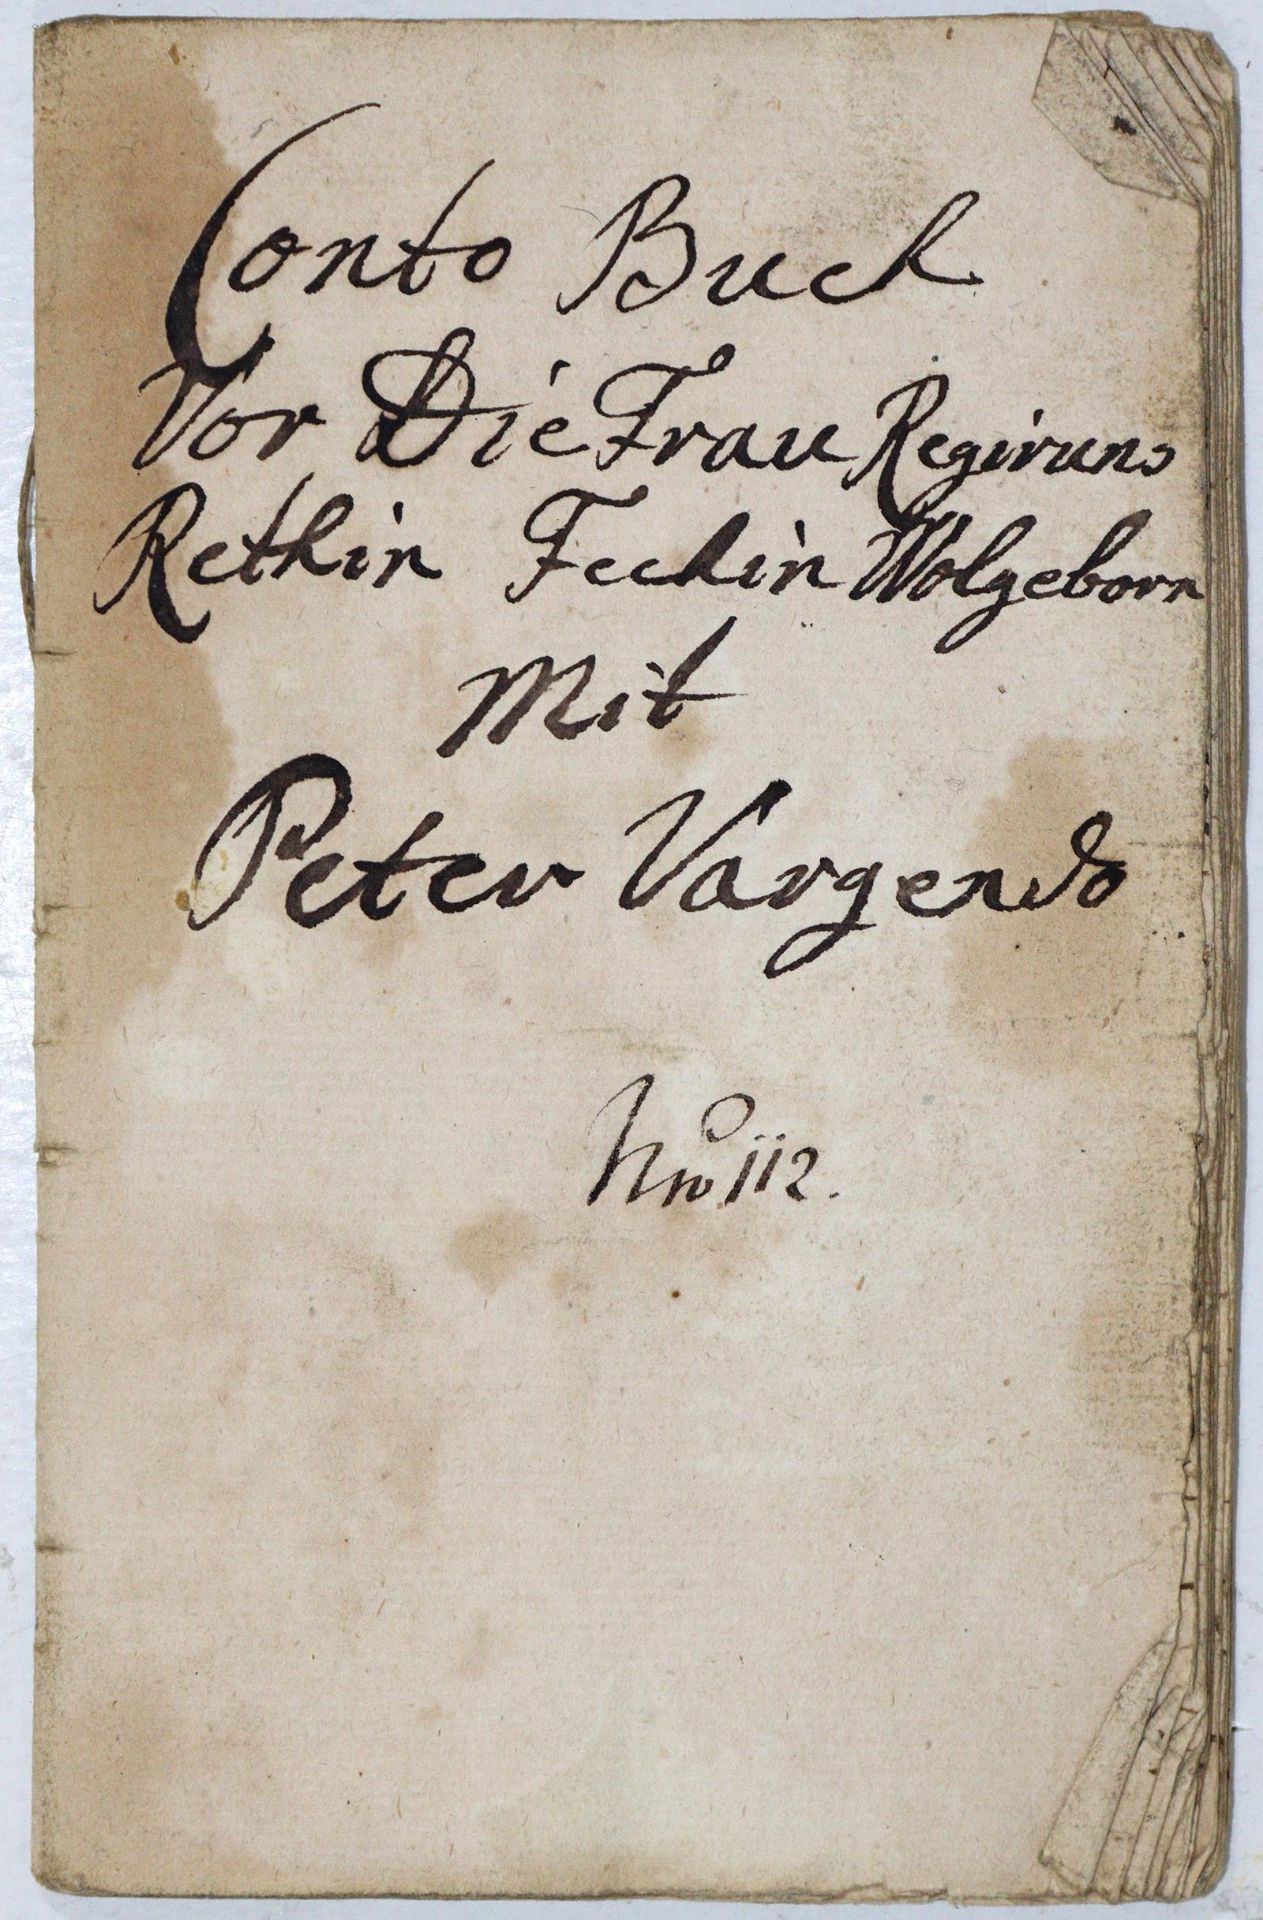 Conto Buch
Vor Die Frau Regiruns
Rethin Fechin Wolgeborn
Mit
Peter Vargendo
Nro 112.